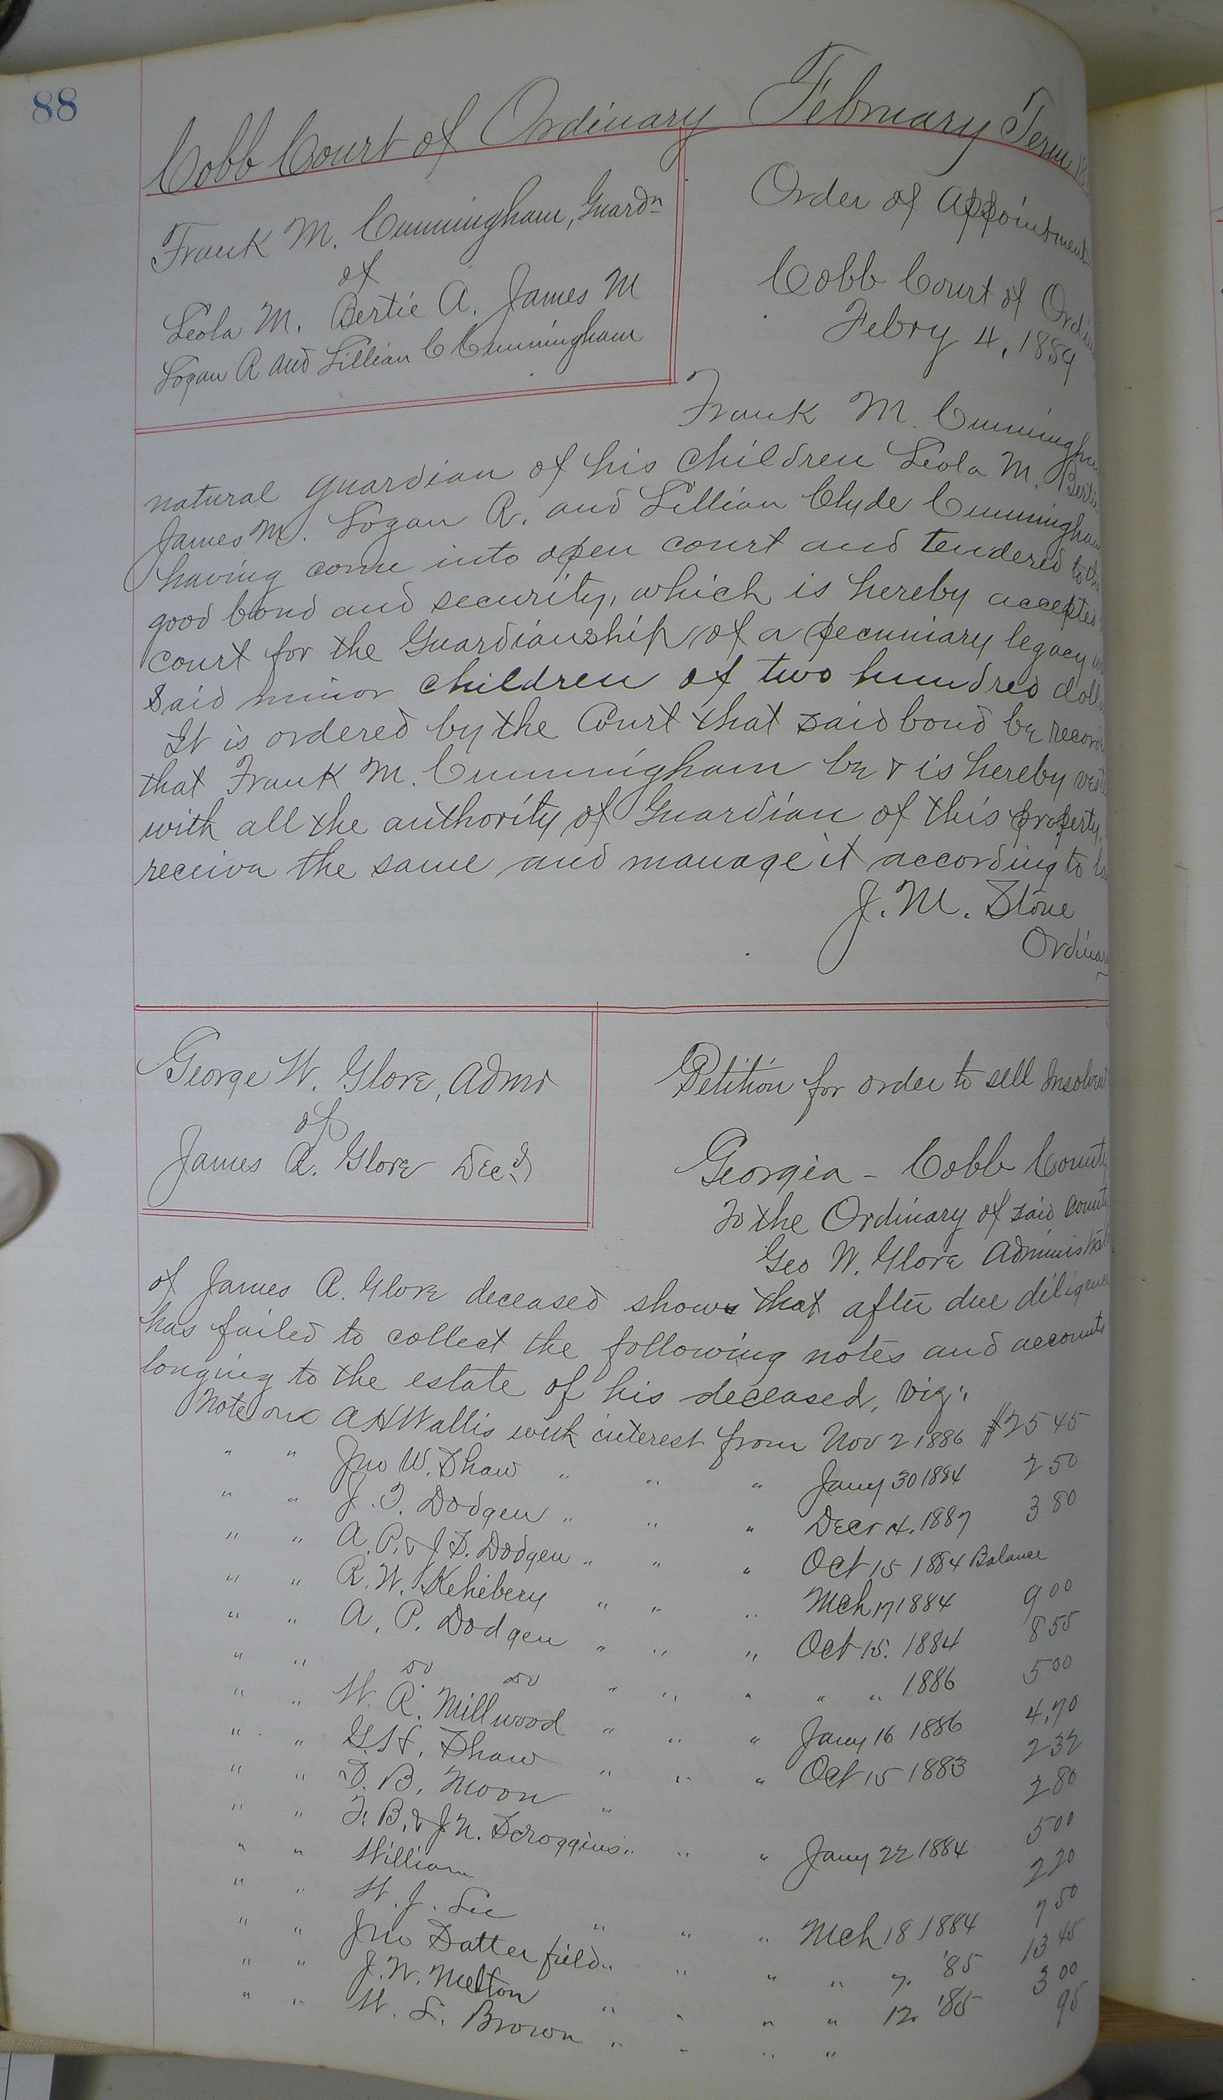 88
Cobb Court of Ordinary February Term
Frank M. Cunningham, Guardn
of
Leola M. Bertie A. James M
Logan R and Lillian C Cunningham
Order of Appointment
Cobb Court of Ordi
Febry 4, 1889
Frank M. Cunningham
natural guardian of his children Leola M. Bertie
James M. Logan R. and Lillian Clyde Cunningham
having come into open court and tendered to
good bond and security, which is hereby accepted
court for the Guardianship of a pecuniary legacy
said minor children of two hundred doll
It is ordered by the Court that said bond be record
that Frank M. Cunningham be & is hereby vest
with all the authority of Guardian of this property,
receive the same and manage it according to
J. M. Stone
Ordinary
George W. Glore, Admr
of
James A. Glore Decd
Petition for order to sell Insolvent
Georgia - Cobb County
To the Ordinary of said County
Geo W. Glore Administrat
of James A. Glore deceased shows that after due diligence
has failed to collect the following notes and accounts
longing to the estate of his deceased, viz:
Note on A H Wallis with interest from Nov 2 1886 $25 45
" " Jno W. Shaw " " " Jany 30 1884 2 50
" " J. T. Dodgen " " " Decr 4, 1887 3 80
" " A. P. & J. T. Dodgen " " " Oct 15 1884 Balance
" " R. W. " " " Mch 17 1884 9 00
" " A. P. Dodgen " " " Oct 15. 1884 8 55
" " do do " " " " " 1886 5 00
" " W. R. Millwood " " " Jany 16 1886 4.70
" " G. H. Shaw " " " Oct 15 1883 2 32
" " D. B. Moon " 2 80
" " F. B. & J. N. Scroggins " " " Jany 22 1884 5 00
" " William 2 20
" " W. J. Lee " " " Mch 18 1884 7 50
" " Jno Satterfield " " " " 7. '85 13 45
" " J. W. Melton " " " " 12. '85 3 00
" " W. L. Brown " " " " 95